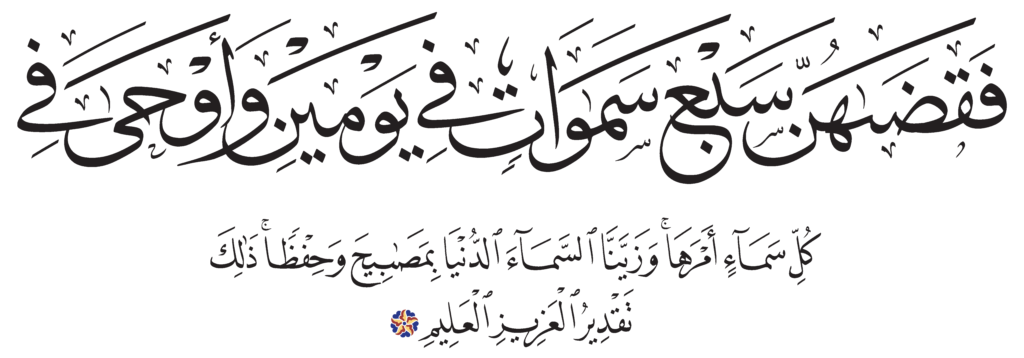 فَقَضَىٰهُنَّ سَبْعَ سَمَٰوَاتٍ فِي يَوْمَيْنِ وَأَوْحَىٰ فِي
كُلِّ سَمَآءٍ أَمْرَهَاۚ وَزَيَّنَّا ٱلسَّمَآءَ ٱلدُّنْيَا بِمَصَٰبِيحَ وَحِفْظًاۚ ذَٰلِكَ
تَقْدِيرُ ٱلْعَزِيزِ ٱلْعَلِيمِ